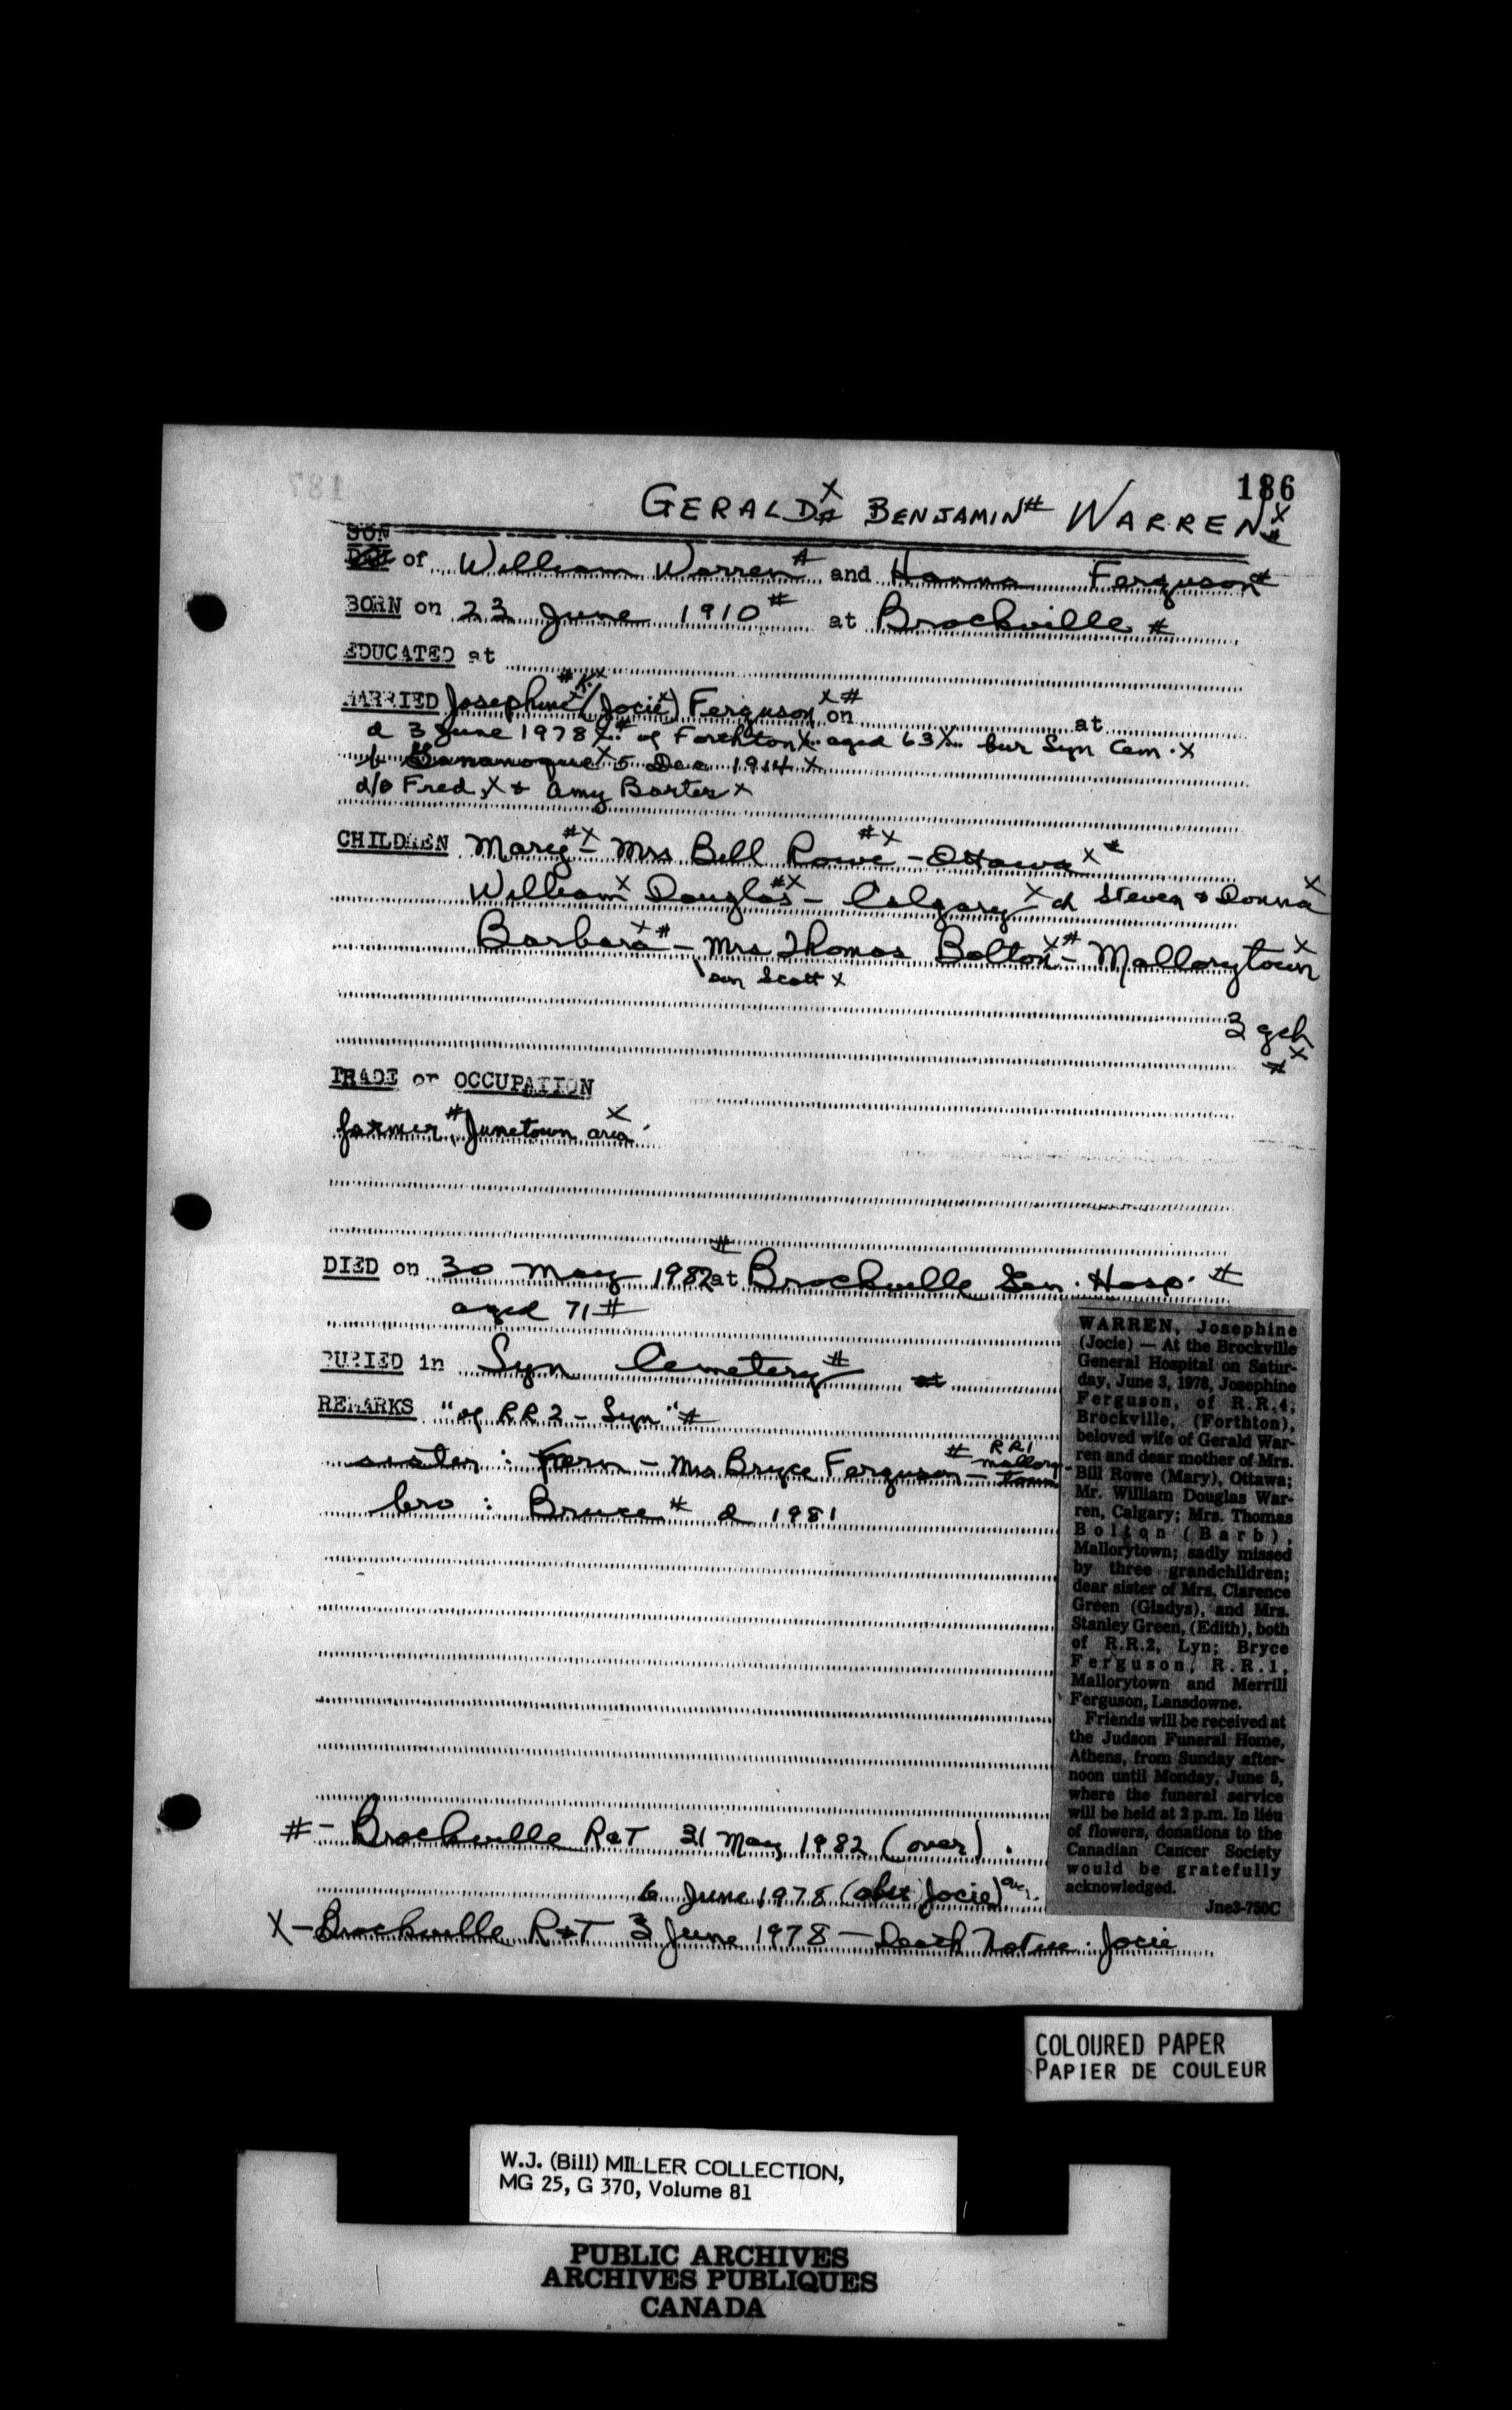 187
186
GERALD X# BENJAMIN # WARREN X#
SON
of William Warren # and Hanna Ferguson #
BORN on 23 June 1910 # at Brockville #
EDUCATED at
MARRIED Josephine #X (Jocie X) Ferguson X# on at
d 3 June 1978 X# of Forthton X aged 63 X bur Lyn Cem. X
b Gananoque X 5 Dec 1914 X
d/o Fred X & Amy Barter X
CHILDREN Mary #X - Mrs Bill Rowe #X - Ottawa X#
William X Douglas #X - Calgary X ch Steven & Donna X
Barbara X# - Mrs Thomas Bolton X# - Mallorytown X
son Scott X
3 gch
# X
TRADE or OCCUPATION
farmer #, Junetown area X
DIED on 30 May 1982 # at Brockville Gen. Hosp. #
aged 71 #
BURIED in Lyn Cemetery # at
REMARKS "of RR 2 - Lyn" #
sister : Fern - Mrs Bryce Ferguson # - RR1 Mallorytown
bro : Bruce # d 1981
WARREN, Josephine
(Jocie) — At the Brockville
General Hospital on Satur-
day, June 3, 1978, Josephine
Ferguson, of R.R.4,
Brockville, (Forthton),
beloved wife of Gerald War-
ren and dear mother of Mrs.
Bill Rowe (Mary), Ottawa;
Mr. William Douglas War-
ren, Calgary; Mrs. Thomas
Bolton (Barb),
Mallorytown; sadly missed
by three grandchildren;
dear sister of Mrs. Clarence
Green (Gladys), and Mrs.
Stanley Green, (Edith), both
of R.R.2, Lyn; Bryce
Ferguson, R.R.1,
Mallorytown and Merrill
Ferguson, Lansdowne.
Friends will be received at
the Judson Funeral Home,
Athens, from Sunday after-
noon until Monday, June 5,
where the funeral service
will be held at 2 p.m. In lieu
of flowers, donations to the
Canadian Cancer Society
would be gratefully
acknowledged.
Jne3-750C
# - Brockville R&T 31 May 1982 (over).
6 June 1978 (obit Jocie) over.
X - Brockville R&T 3 June 1978 - Death Notice. Jocie
COLOURED PAPER
PAPIER DE COULEUR
W.J. (Bill) MILLER COLLECTION,
MG 25, G 370, Volume 81
PUBLIC ARCHIVES
ARCHIVES PUBLIQUES
CANADA